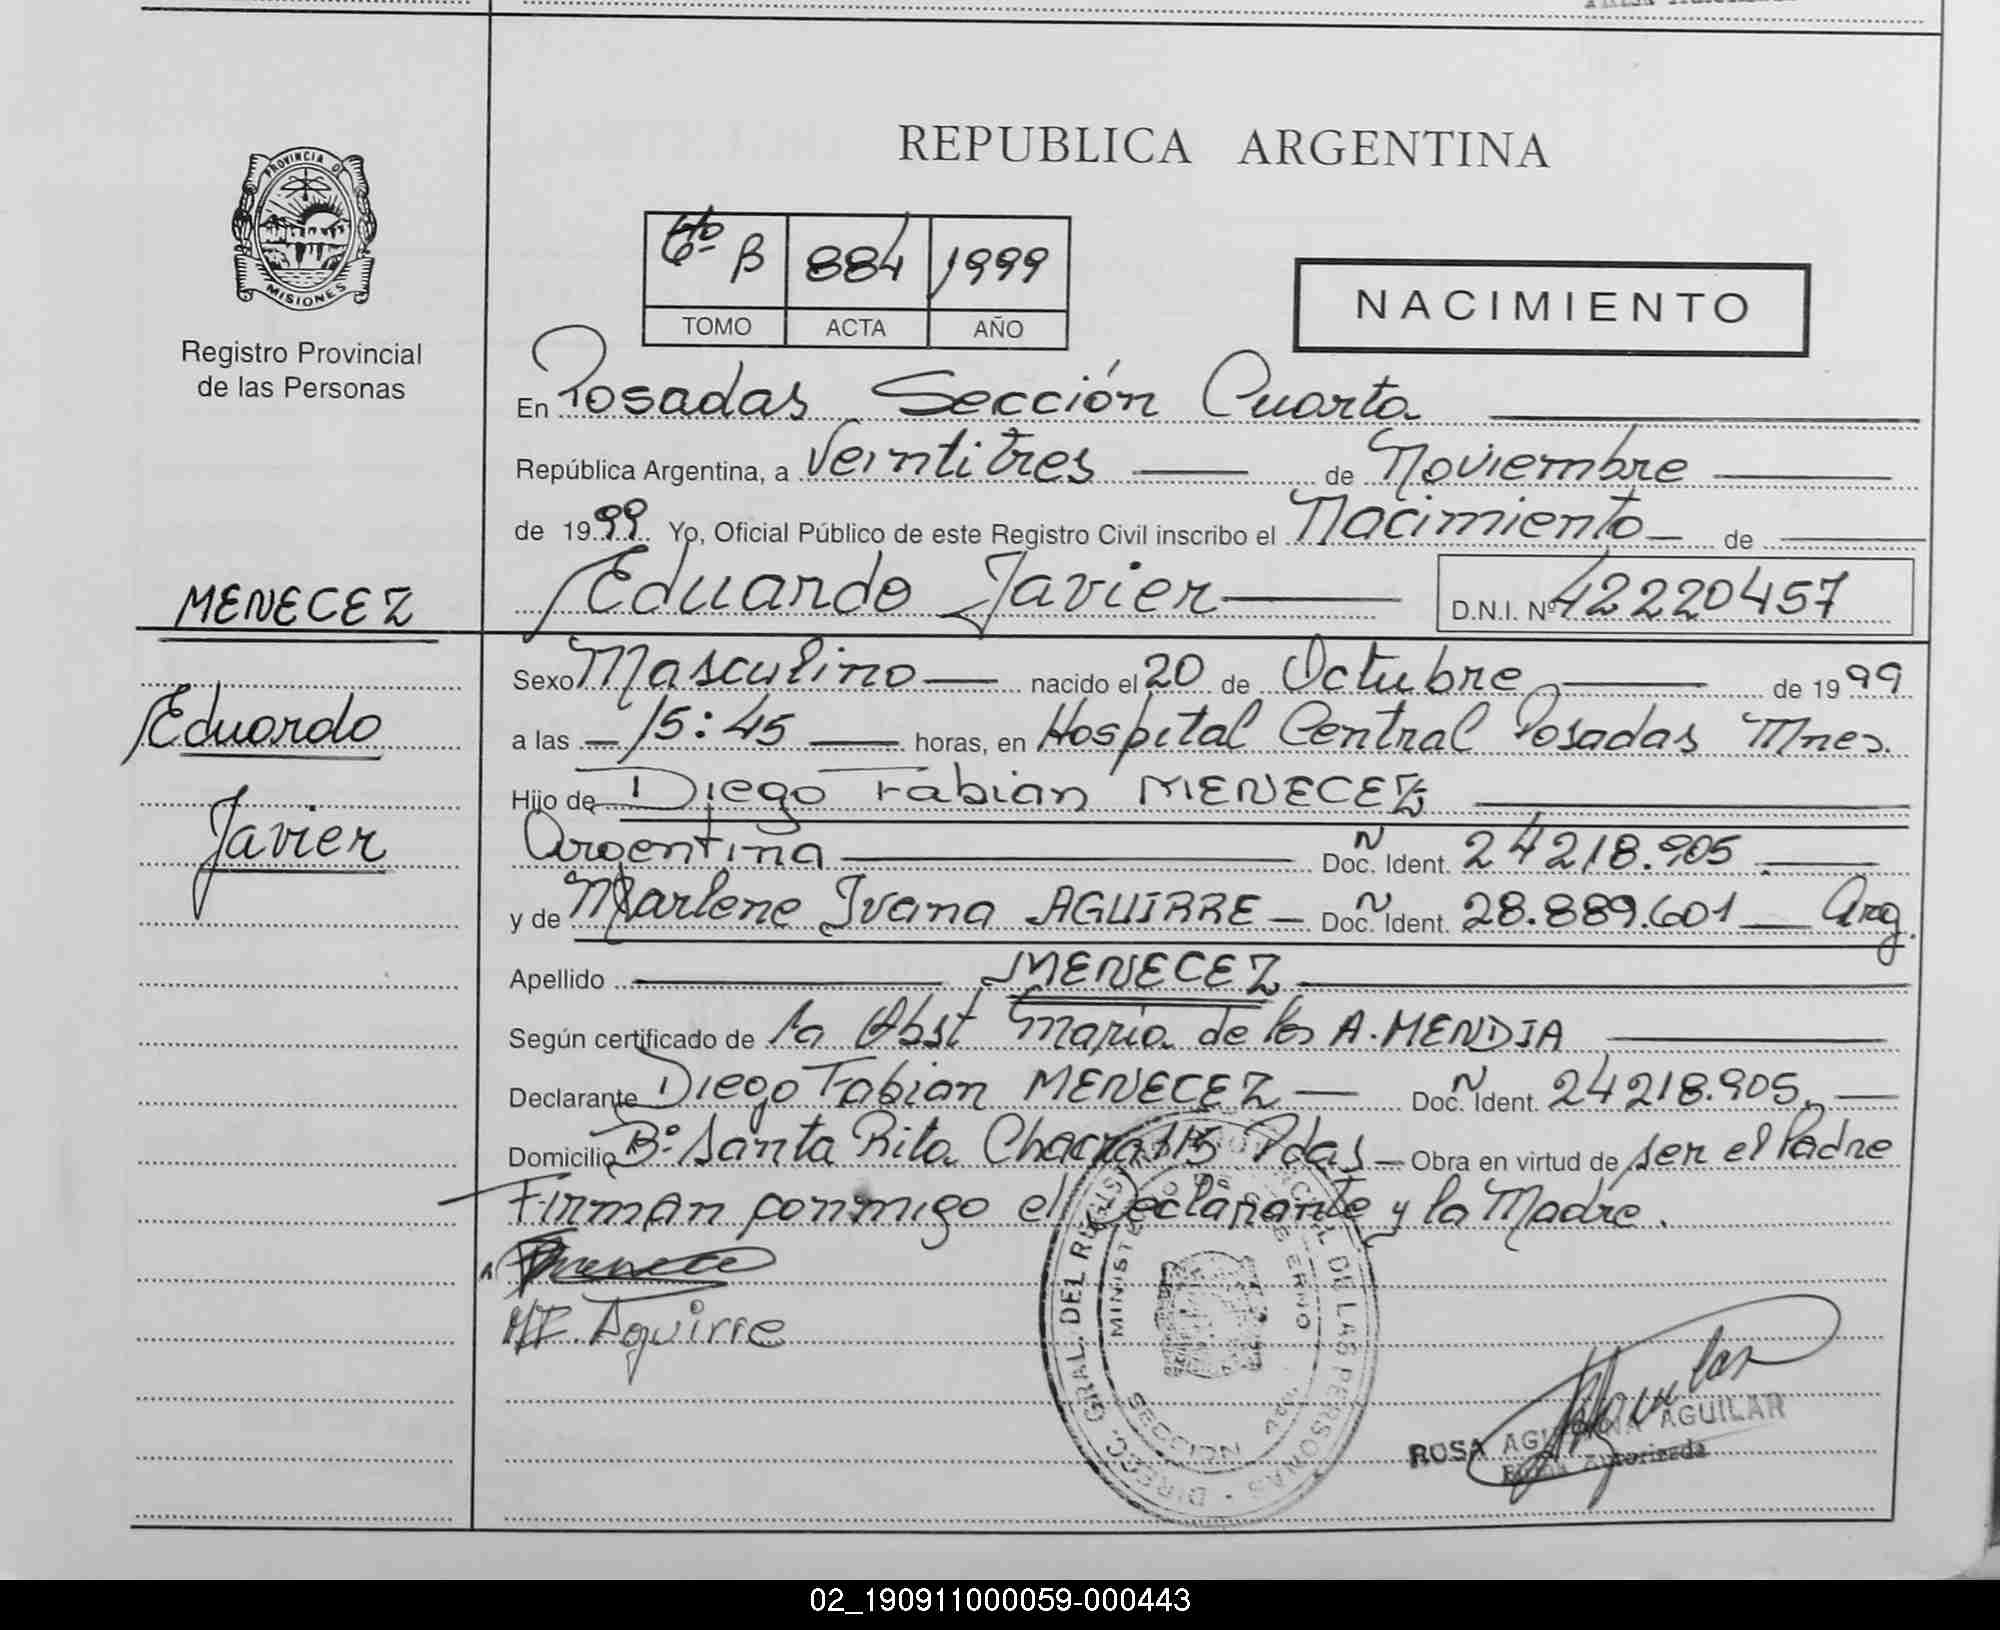 REPUBLICA ARGENTINA
PROVINCIA DE
MISIONES
Registro Provincial
de las Personas
6to B 884 1999
TOMO ACTA AÑO
NACIMIENTO
En Posadas Sección Cuarta
República Argentina, a Veintitres de Noviembre
de 1999 Yo, Oficial Público de este Registro Civil inscribo el Nacimiento de
Eduardo Javier D.N.I. Nº 42220457
MENECEZ
Eduardo
Javier
Sexo Masculino nacido el 20 de Octubre de 1999
a las 15:45 horas, en Hospital Central Posadas Mnes.
Hijo de Diego Fabian MENECEZ
Argentina Doc. Ident. 24218.905
y de Marlene Ivana AGUIRRE Doc. Ident. 28.889.601 Arg.
Apellido MENECEZ
Según certificado de la Obst Maria de los A. MENDIA
Declarante Diego Fabian MENECEZ Doc. Ident. 24218.905.
Domicilio Bº Santa Rita Chacra 115 Pdas Obra en virtud de ser el Padre
Firman conmigo el Declarante y la Madre.
MI. Aguirre
DIREC. GRAL. DEL REGISTRO PROVINCIAL DE LAS PERSONAS
MINISTERIO DE GOBIERNO
SECCION
ROSA AGUILAR
Autorizada
02_190911000059-000443